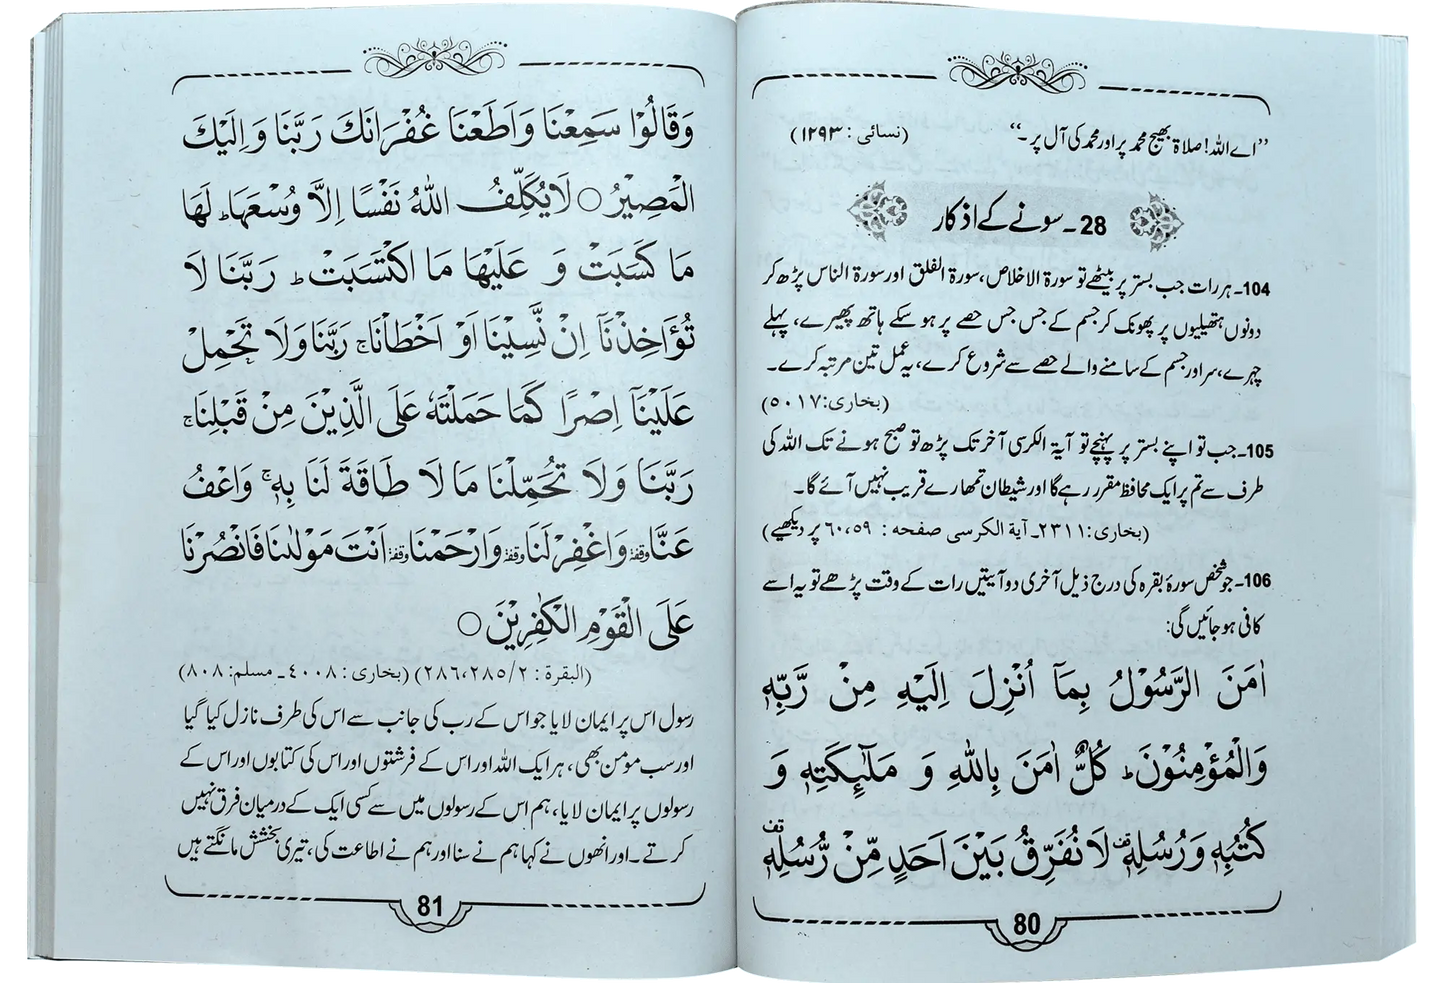 ”اے اللہ! صلاۃ بھیج محمد پر اور محمد کی آل پر۔“ (نسائی: ۱۲۹۳)
28۔ سونے کے اذکار
104۔ ہر رات جب بستر پر بیٹھے تو سورۃ الاخلاص، سورۃ الفلق اور سورۃ الناس پڑھ کر
دونوں ہتھیلیوں پر پھونک کر جسم کے جس جس حصے پر ہو سکے ہاتھ پھیرے، پہلے
چہرے، سر اور جسم کے سامنے والے حصے سے شروع کرے، یہ عمل تین مرتبہ کرے۔
(بخاری: ۵۰۱۷)
105۔ جب تو اپنے بستر پر پہنچے تو آیۃ الکرسی آخر تک پڑھ تو صبح ہونے تک اللہ کی
طرف سے تم پر ایک محافظ مقرر رہے گا اور شیطان تمھارے قریب نہیں آئے گا۔
(بخاری: ۲۳۱۱۔ آیۃ الکرسی صفحہ: ۶۰،۵۹ پر دیکھیے)
106۔ جو شخص سورۂ بقرہ کی درج ذیل آخری دو آیتیں رات کے وقت پڑھے تو یہ اسے
کافی ہو جائیں گی:
اٰمَنَ الرَّسُوْلُ بِمَآ اُنْزِلَ اِلَيْهِ مِنْ رَّبِّهٖ
وَالْمُؤْمِنُوْنَ ؕ كُلٌّ اٰمَنَ بِاللّٰهِ وَ مَلٰٓئِكَتِهٖ وَ
كُتُبِهٖ وَرُسُلِهٖ ۫ لَا نُفَرِّقُ بَيْنَ اَحَدٍ مِّنْ رُّسُلِهٖ ۫
80
وَقَالُوْا سَمِعْنَا وَاَطَعْنَا غُفْرَانَكَ رَبَّنَا وَاِلَيْكَ
الْمَصِيْرُ ○ لَا يُكَلِّفُ اللّٰهُ نَفْسًا اِلَّا وُسْعَهَا ؕ لَهَا
مَا كَسَبَتْ وَ عَلَيْهَا مَا اكْتَسَبَتْ ؕ رَبَّنَا لَا
تُؤَاخِذْنَآ اِنْ نَّسِيْنَا اَوْ اَخْطَاْنَا ۚ رَبَّنَا وَلَا تَحْمِلْ
عَلَيْنَآ اِصْرًا كَمَا حَمَلْتَهٗ عَلَى الَّذِيْنَ مِنْ قَبْلِنَا ۚ
رَبَّنَا وَلَا تُحَمِّلْنَا مَا لَا طَاقَةَ لَنَا بِهٖ ۚ وَاعْفُ
عَنَّا وقفة وَاغْفِرْ لَنَا وقفة وَارْحَمْنَا وقفة اَنْتَ مَوْلٰىنَا فَانْصُرْنَا
عَلَى الْقَوْمِ الْكٰفِرِيْنَ ○
(البقرۃ: ۲۸۶،۲۸۵/۲) (بخاری: ۴۰۰۸۔ مسلم: ۸۰۸)
رسول اس پر ایمان لایا جو اس کے رب کی جانب سے اس کی طرف نازل کیا گیا
اور سب مومن بھی، ہر ایک اللہ اور اس کے فرشتوں اور اس کی کتابوں اور اس کے
رسولوں پر ایمان لایا، ہم اس کے رسولوں میں سے کسی ایک کے درمیان فرق نہیں
کرتے۔ اور انھوں نے کہا ہم نے سنا اور ہم نے اطاعت کی، تیری بخشش مانگتے ہیں
81